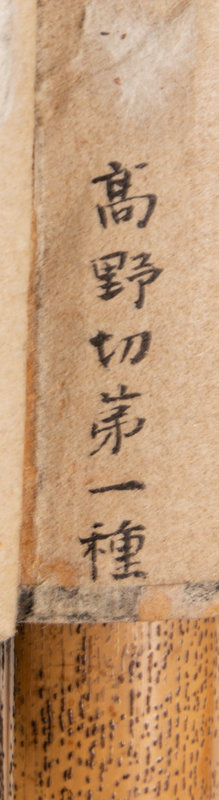 髙野切第一種